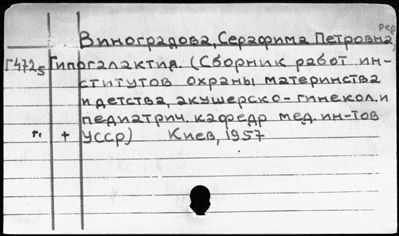 Виноградова, Серафима Петровна, ред
Г4725 Гипогалактия. (Сборник работ ин-
ститутов охраны материнства
и детства, акушерско-гинекол. и
педиатрич. кафедр мед. ин-тов
г. + УССР) Киев, 1957